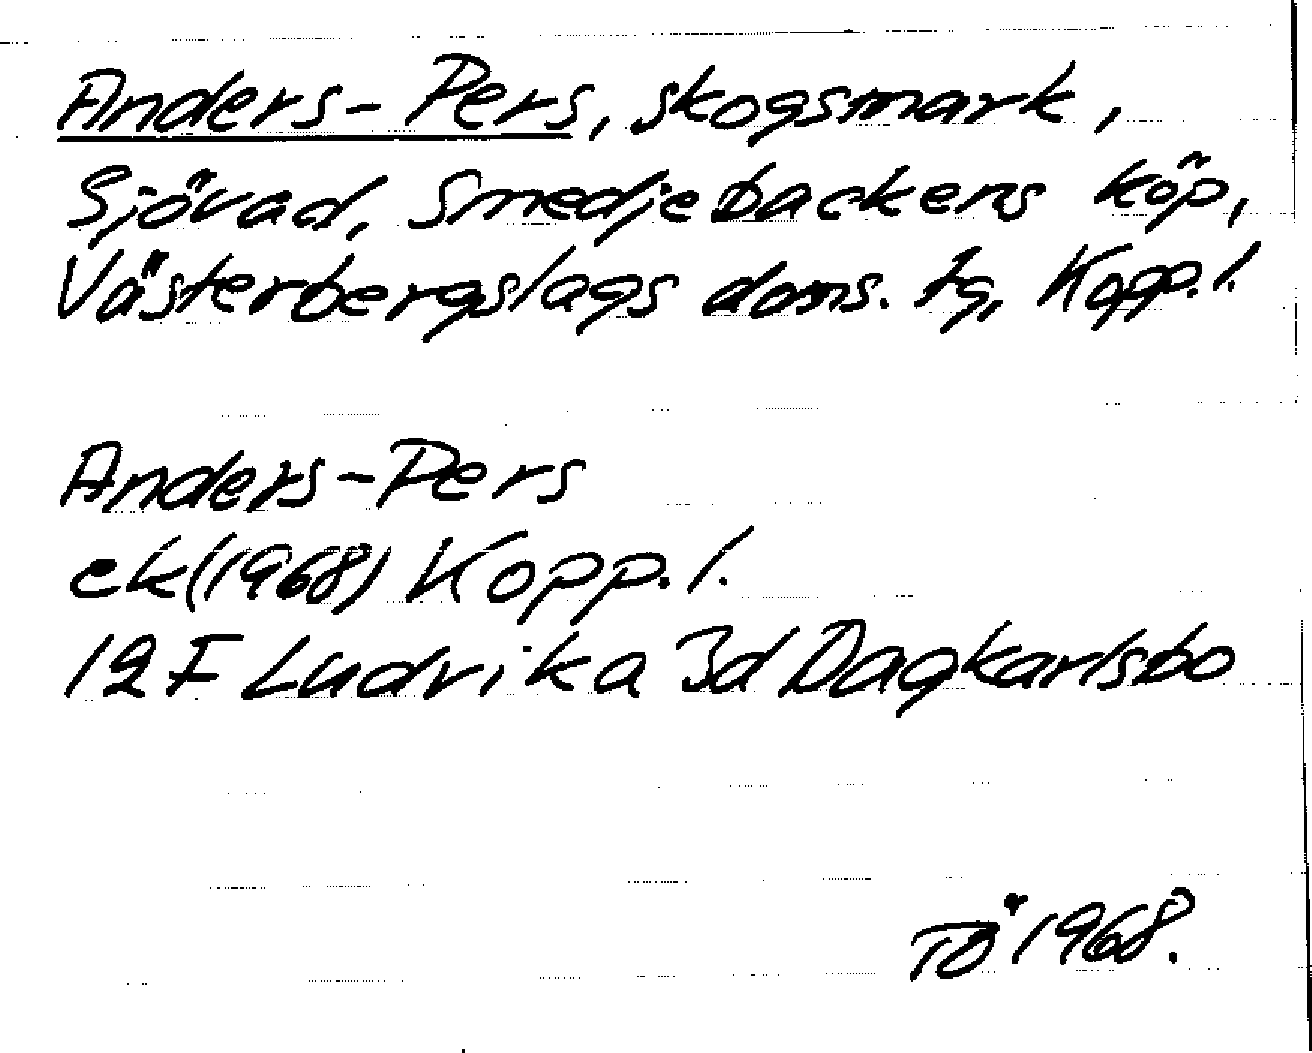 Anders-Pers, skogsmark,
Sjövad, Smedjebackens köp,
Västerbergslags doms. tg, Kopp.l.
Anders-Pers
ek(1968) Kopp.l.
12F Ludvika 3d Dagkarlsbo
TÖ 1968.